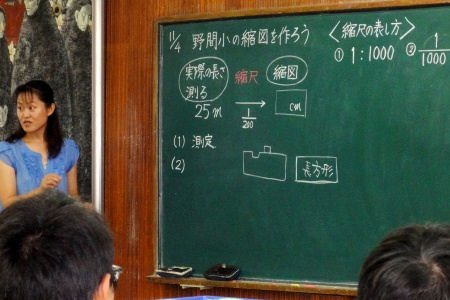 11/4 野間小の縮図を作ろう
〈縮尺の表し方〉
① 1:1000 ② 1/1000
実際の長さ 縮尺 縮図
測る
25m → cm
1/200
(1) 測定
(2)
長方形